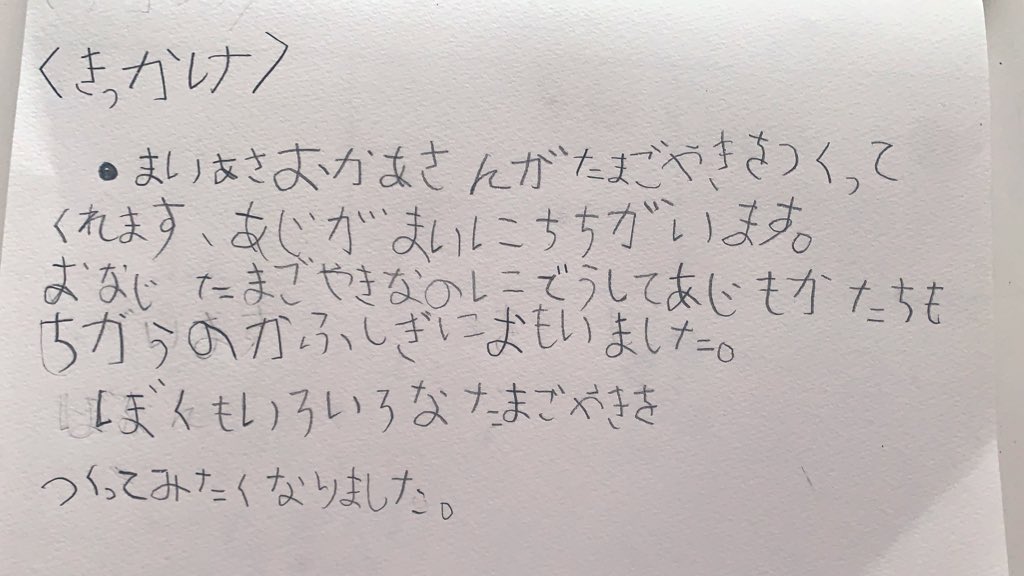 〈きっかけ〉
●まいあさおかあさんがたまごやきをつくって
くれます、あじがまいにちちがいます。
おなじ たまごやきなのにどうしてあじもかたちも
ちがうのかふしぎにおもいました。
ぼくもいろいろなたまごやきを
つくってみたくなりました。